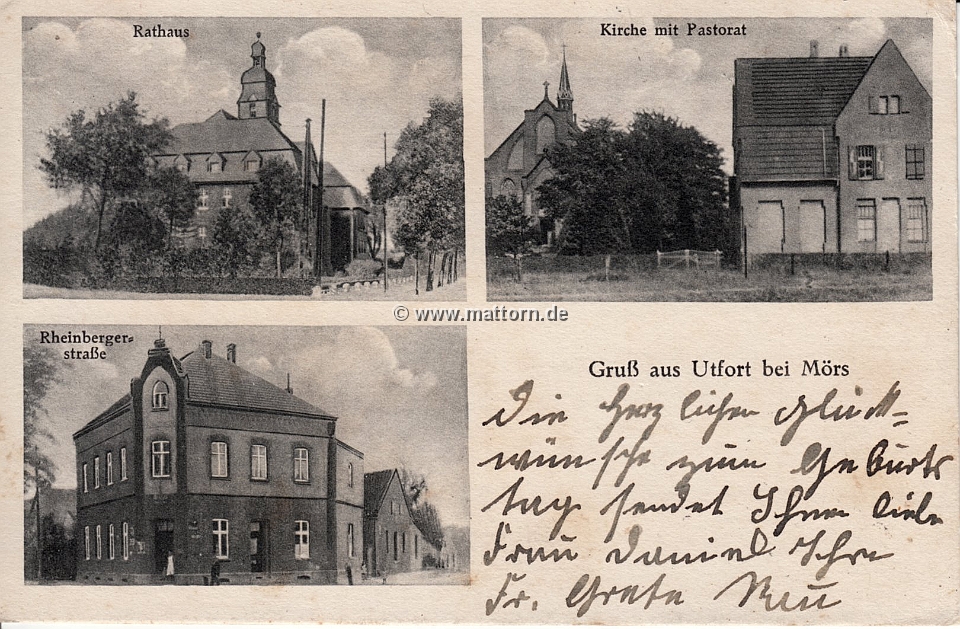 Rathaus
Kirche mit Pastorat
© www.mattorn.de
Rheinberger-
straße
Gruß aus Utfort bei Mörs
Die herzlichen Glück-
wünsche zum Geburts
tag sendet Ihnen liebe
Frau Daniel Ihre
Fr. Grete